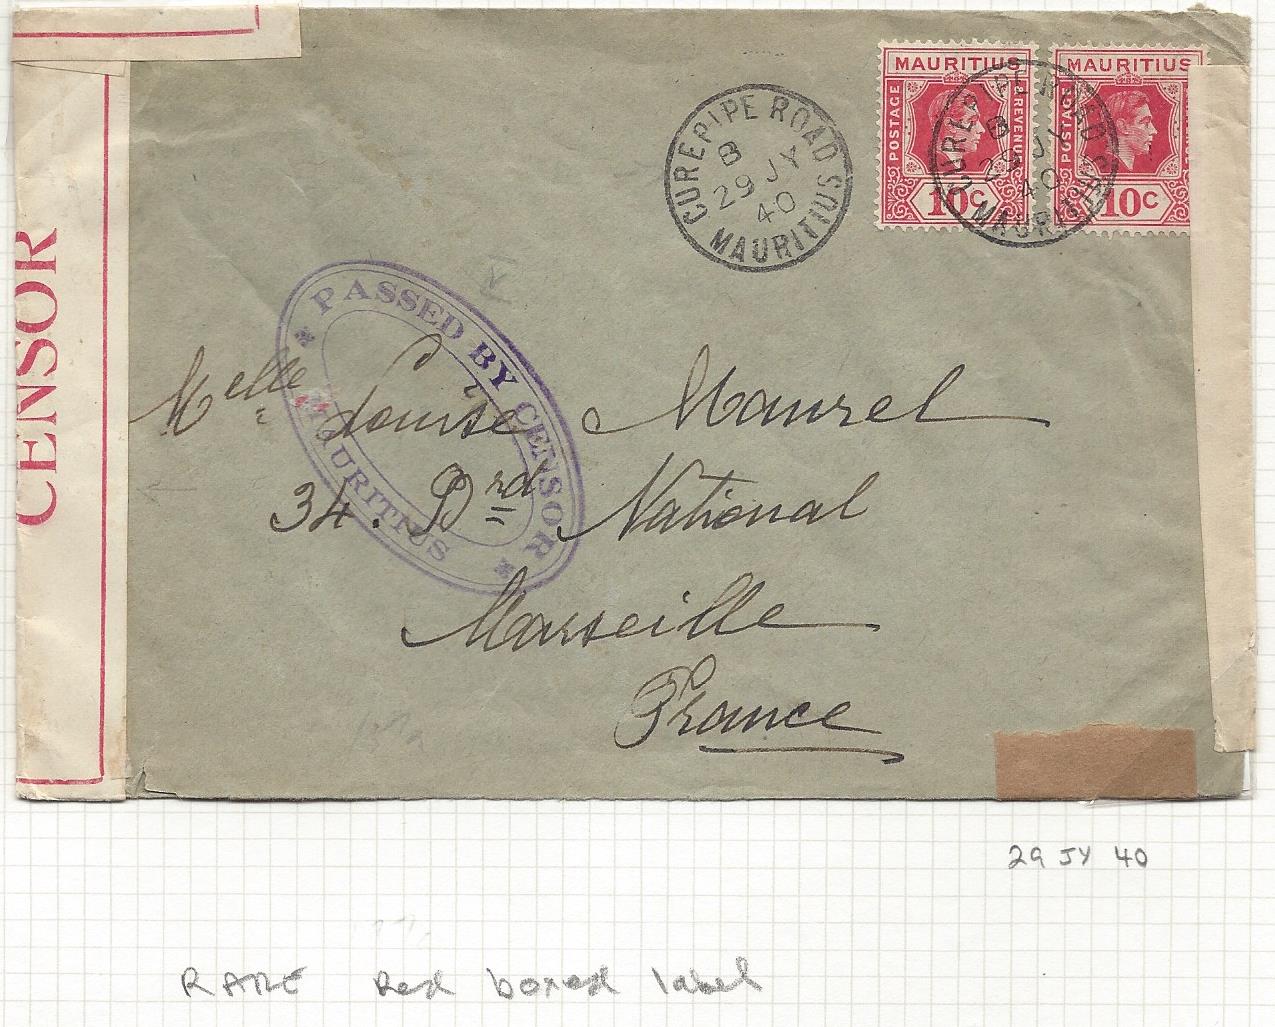 CENSOR
MAURITIUS
POSTAGE
& REVENUE
10c
MAURITIUS
POSTAGE
10c
CUREPIPE ROAD
B
29 JY
40
MAURITIUS
CUREPIPE ROAD
B
29 JY
40
MAURITIUS
PASSED BY CENSOR
MAURITIUS
Melle Louise Maurel
34. Brd National
Marseille
France
29 JY 40
RARE Red boxed label